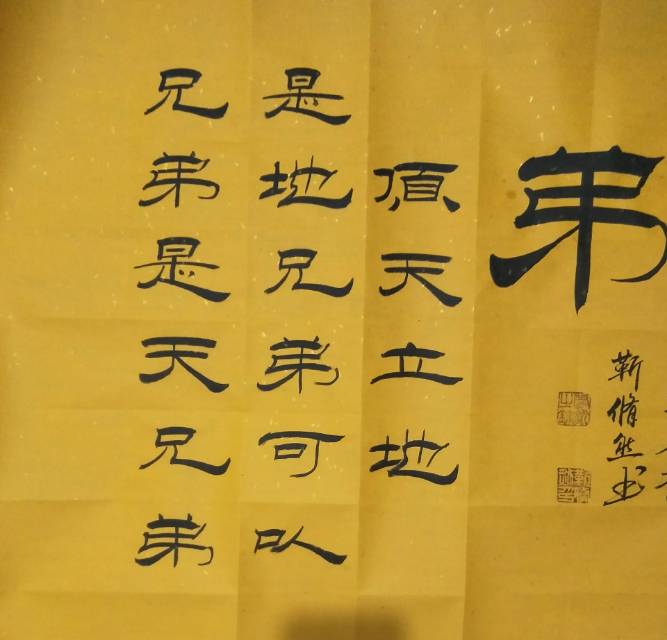 兄弟是天兄弟
是地兄弟可以
頂天立地
弟
靳脩
书